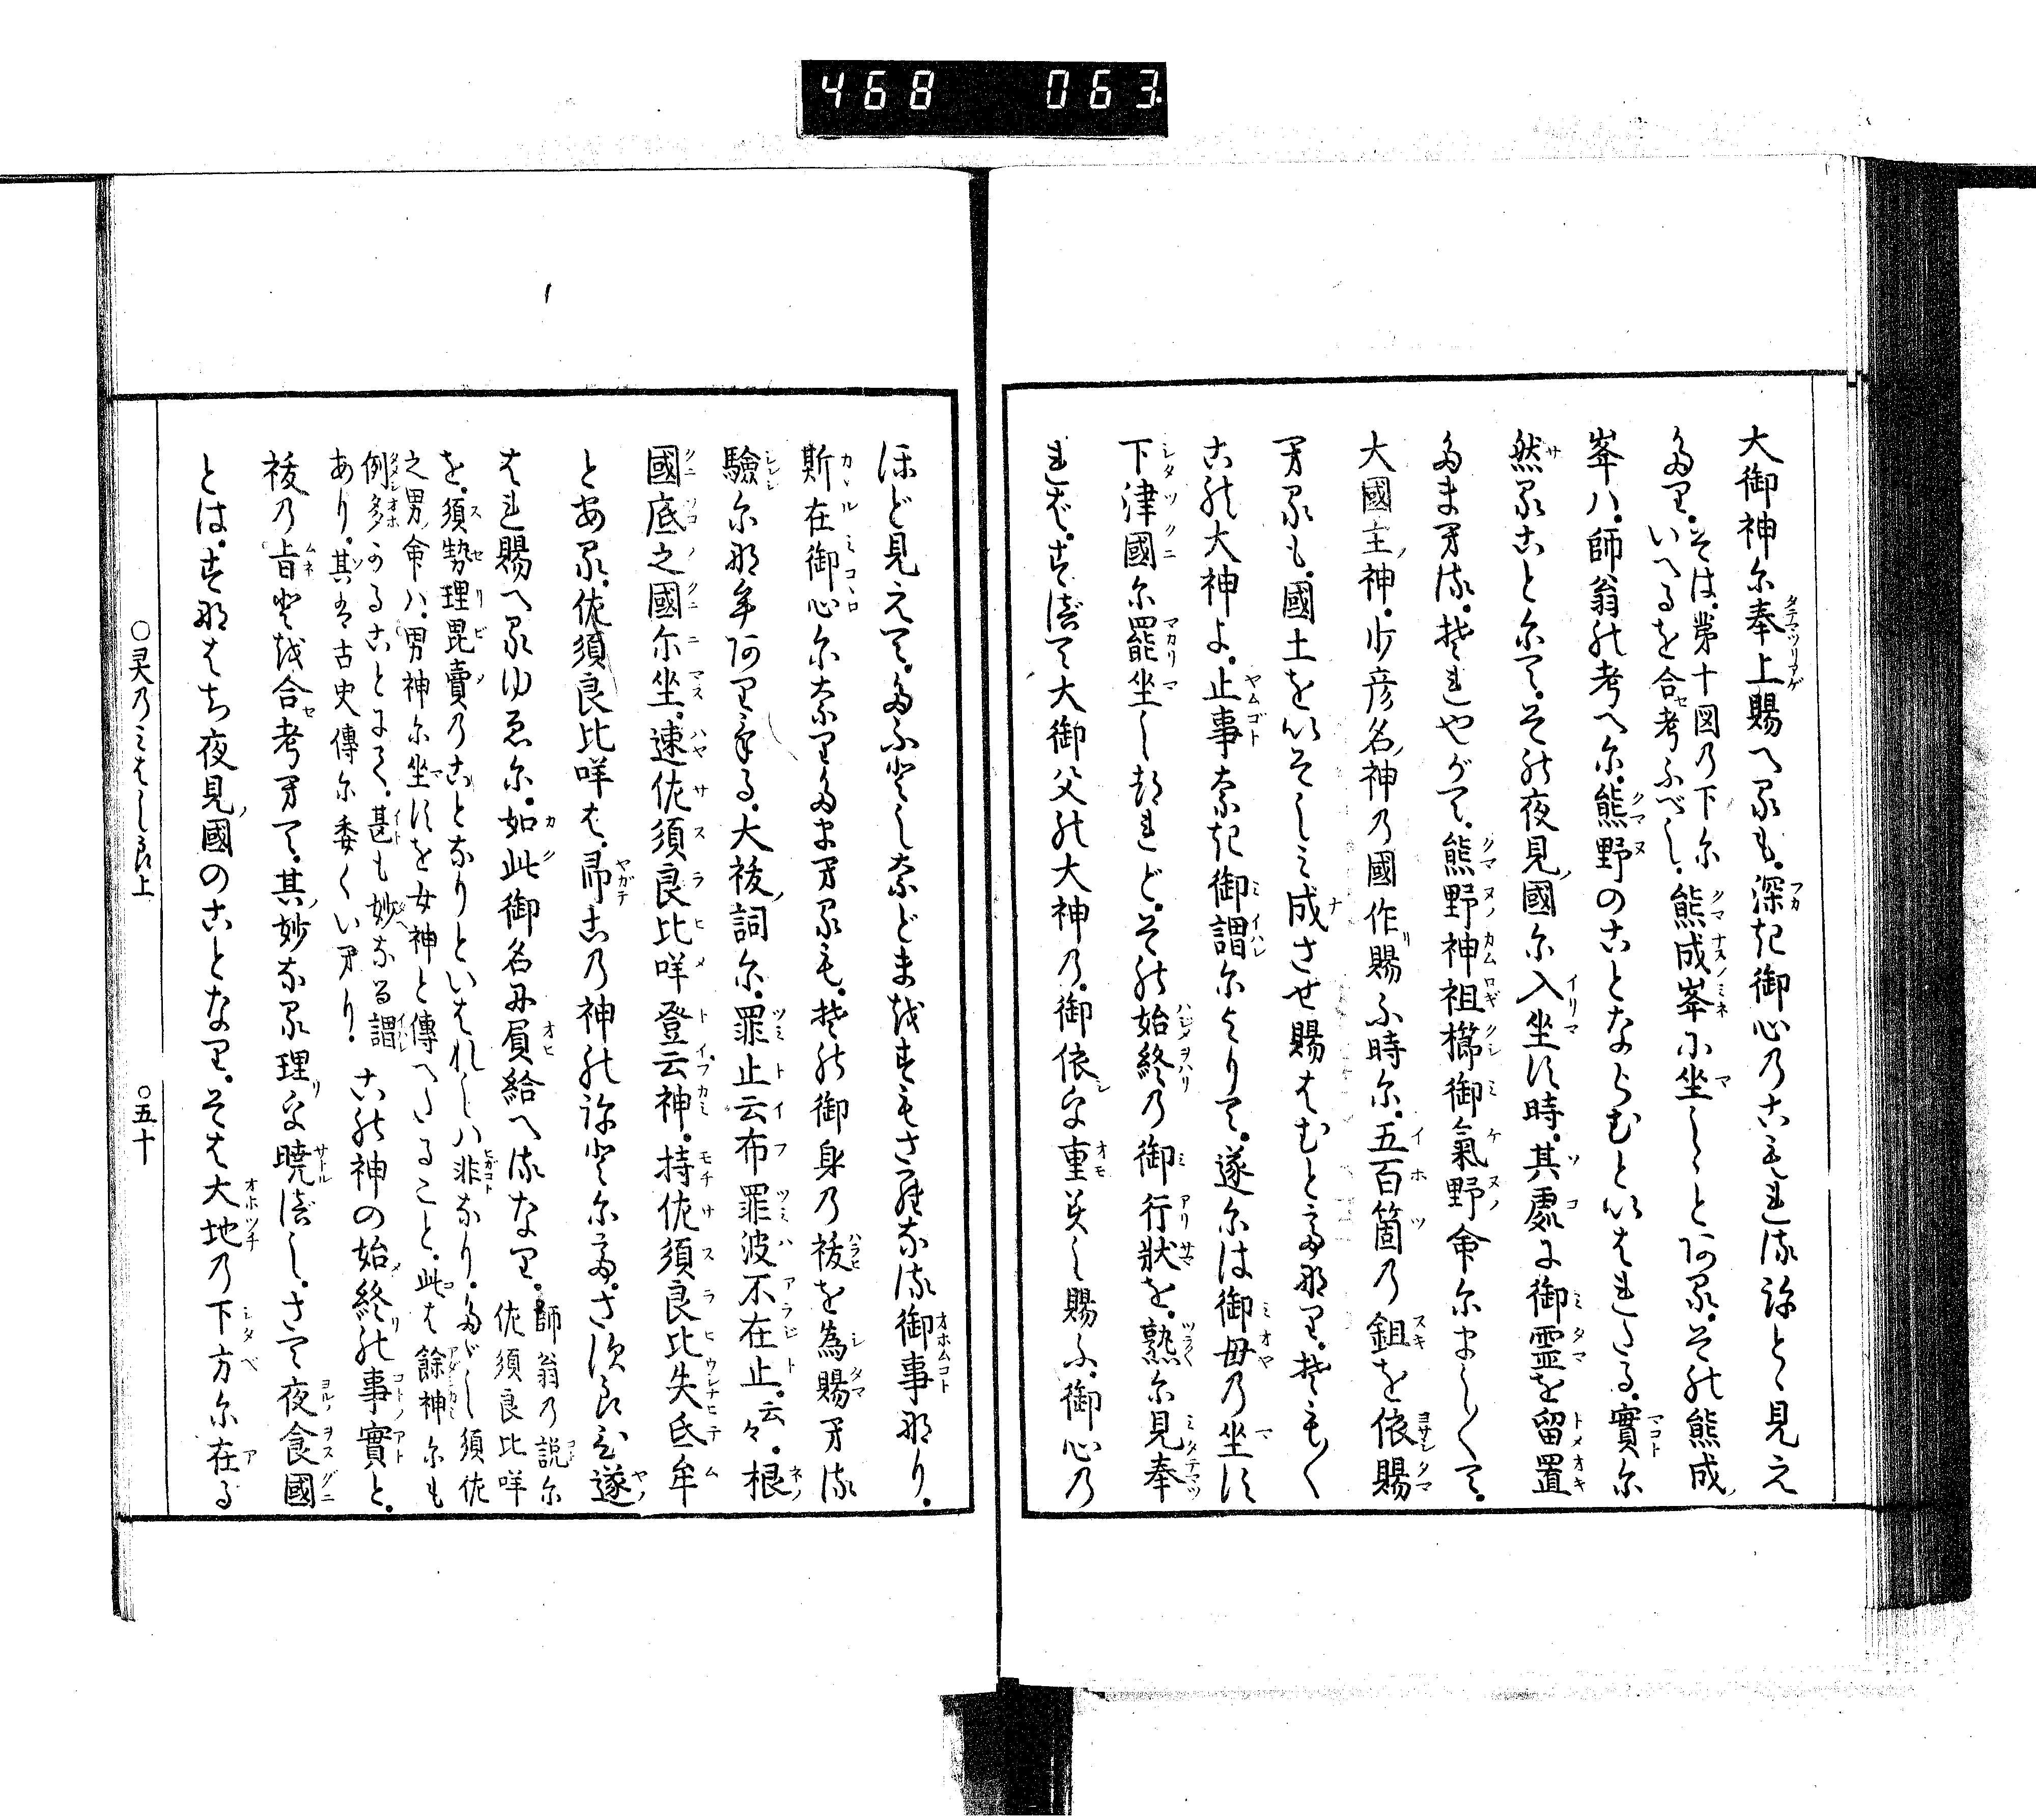 468 063
大御神尓奉上賜へるも。深き御心のこもれる淤と、見え
たり。そは。第十図の下尓
いへるを合考ふべし。熊成峯に坐しゝと阿る。その熊成
峯ハ。師翁の考へ尓。熊野のことならむといはれたる。實尓
然ること尓て。その夜見國尓入坐す時。其處に御霊を留置
たまひる。それやがて。熊野神祖櫛御氣野命尓ましくて。
大國主神。少彦名神の國作賜ふ時尓。五百箇の鉏を依賜
ひるも。國土をいそしみ成させ賜はむと尓なり。そもく
この大神よ。止事なき御謂尓よりて。遂尓は御母の坐す
下津國尓罷坐しつれど。その始終の御行状を。熟尓見奉
れば。すべて大御父の大神の。御依さし重美し賜ふ。御心の
ほど見えて。たふとしなどまをすもさらなる御事なり。
斯在御心尓なりたまひるも。その御身の祓を為賜ひる
驗尓なむ阿りける。大祓詞尓。罪止云布罪波不在止。云々。根
國底之國尓坐。速佐須良比咩登云神。持佐須良比失氐牟
とある。佐須良比咩は。帚この神の御名尓て。さすらひ遂
はれ賜へるゆゑ尓。如此御名に負給へるなり。師翁の説尓
佐須良比咩
を。須勢理毘賣のことなりといはれしハ非なり。たゞし須佐
之男命ハ。男神尓坐すを女神と傳へたること。此は餘神尓も
例多かることにて。甚も妙なる謂
あり。其は古史傳尓委くいへり。この神の始終の事實と。
祓の旨とを合考ひて。其妙なる理を曉べし。さて夜食國
とは。すなはち夜見國のことなり。そは大地の下方尓在る
〇霊乃みはしら上
〇五十